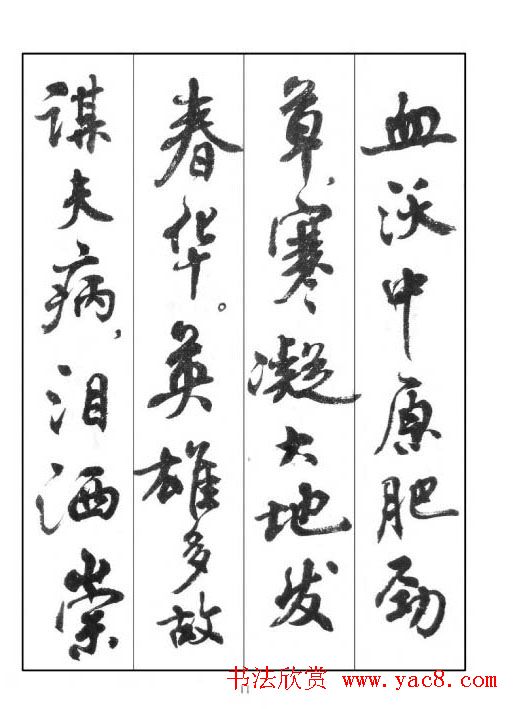 血沃中原肥劲
草，寒凝大地发
春华。英雄多故
谋夫病，泪洒崇
11
书法欣赏 www.yac8.com